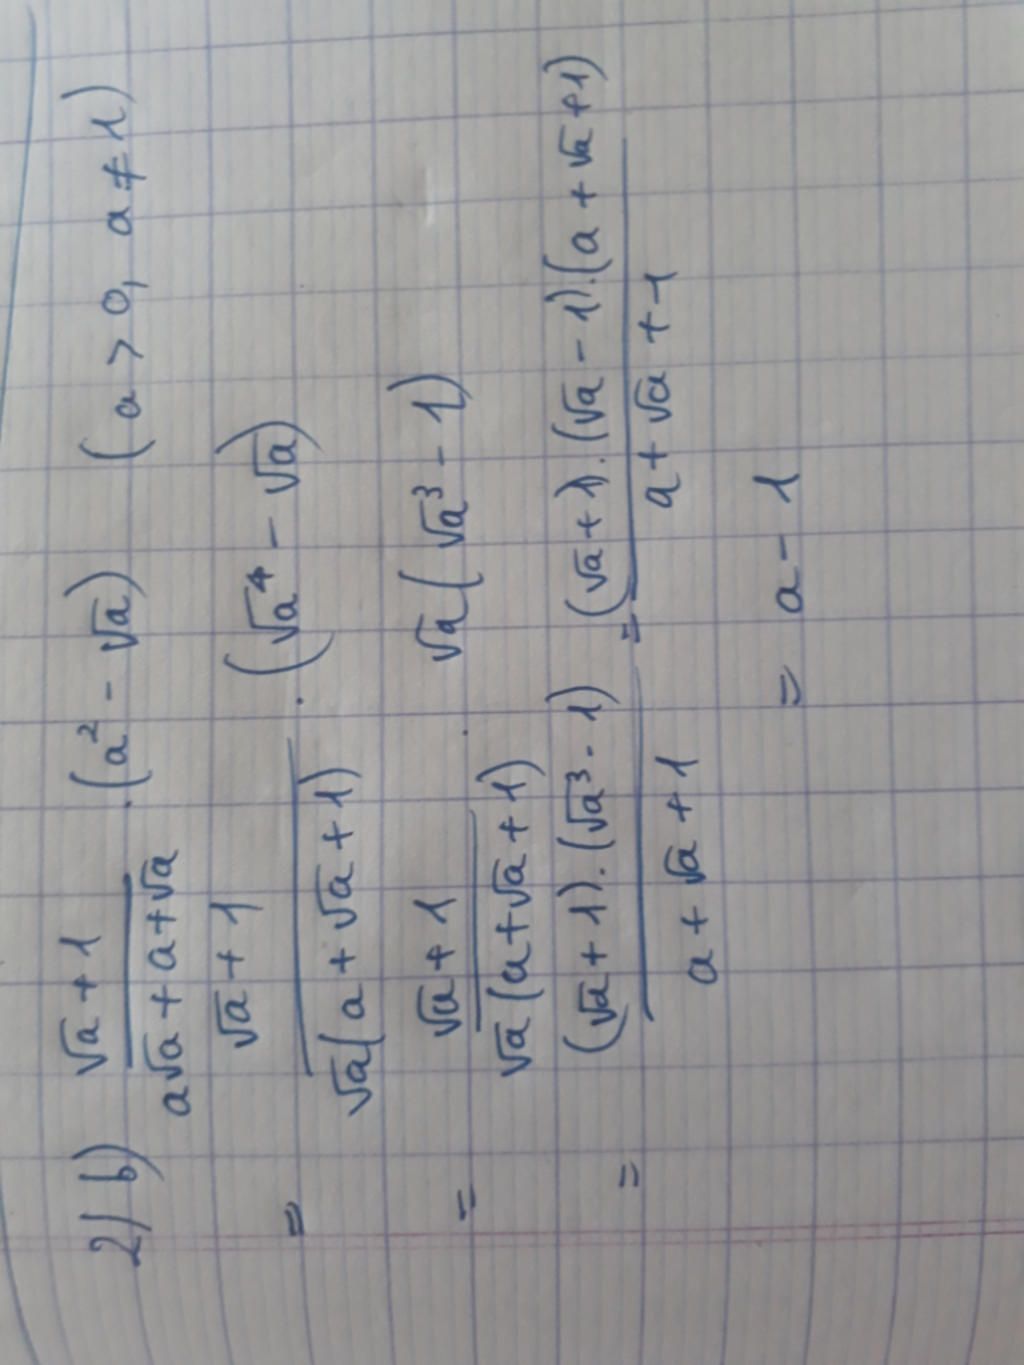 2/ b) (√a + 1)/(a√a + a + √a) . (a² - √a) (a > 0, a ≠ 1)
= (√a + 1)/(√a(a + √a + 1)) . (√a⁴ - √a)
= (√a + 1)/(√a(a + √a + 1)) . √a(√a³ - 1)
= ((√a + 1).(√a³ - 1))/(a + √a + 1) = ((√a + 1).(√a - 1).(a + √a + 1))/(a + √a + 1)
= a - 1